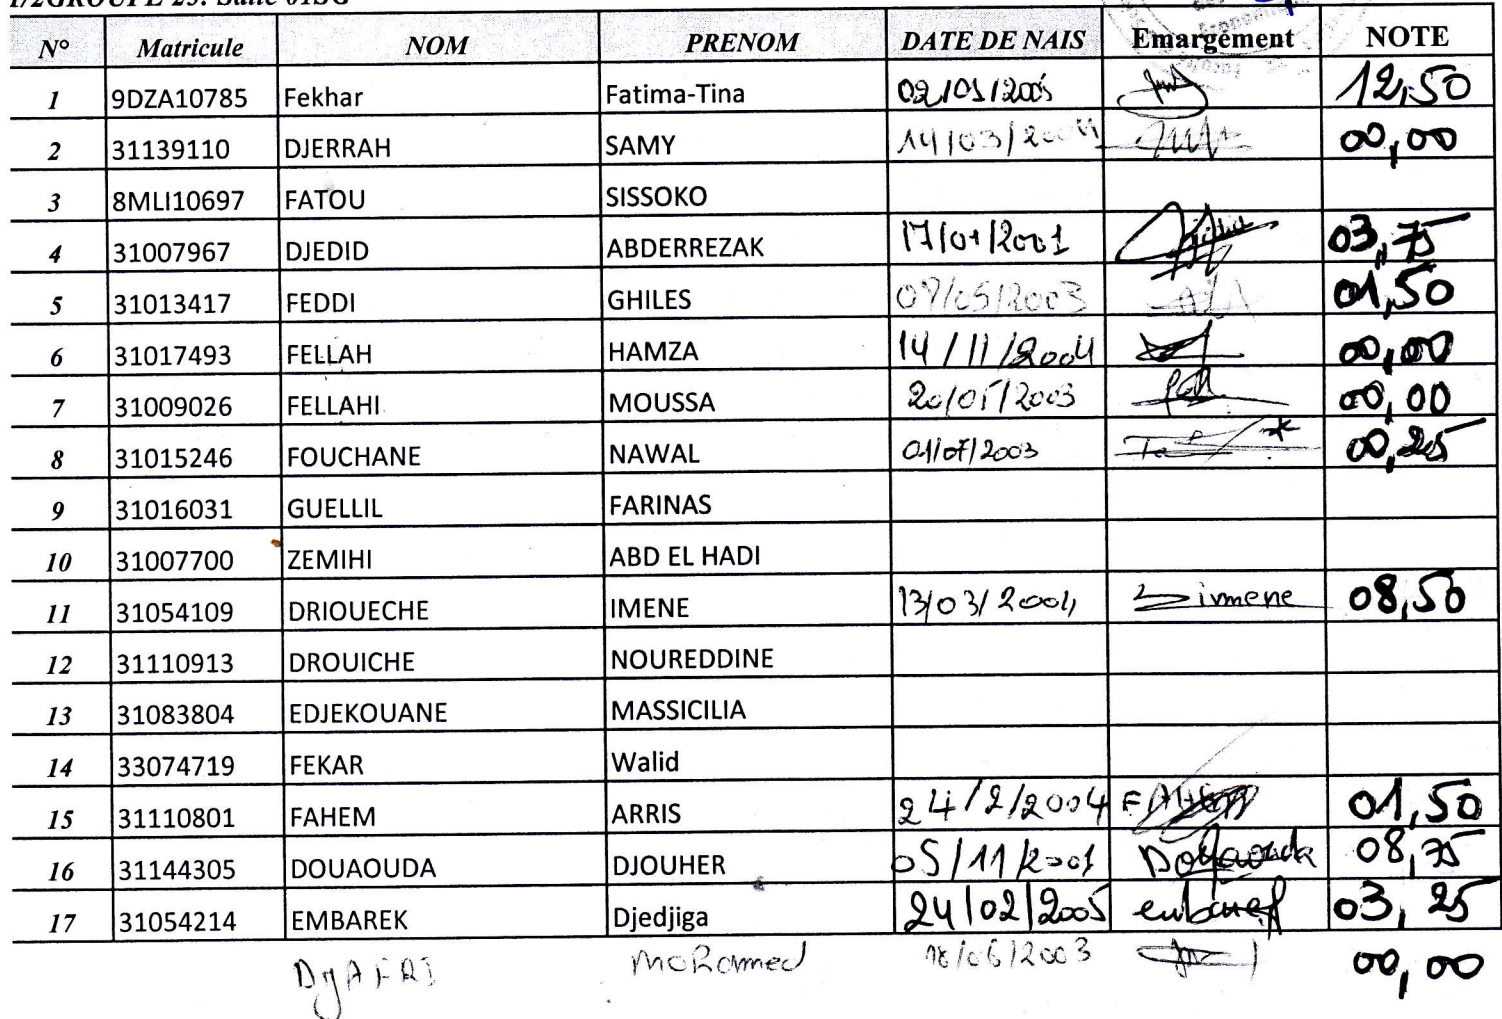 1/2GROUPE 23: Salle 01SG
N° Matricule NOM PRENOM DATE DE NAIS Emargement NOTE
1 9DZA10785 Fekhar Fatima-Tina 02/01/2005 12,50
2 31139110 DJERRAH SAMY 14/03/2004 00,00
3 8MLI10697 FATOU SISSOKO
4 31007967 DJEDID ABDERREZAK 17/01/2001 03,75
5 31013417 FEDDI GHILES 01,50
6 31017493 FELLAH HAMZA 14/11/2004 00,00
7 31009026 FELLAHI MOUSSA 20/05/2003 00,00
8 31015246 FOUCHANE NAWAL 01/07/2003 00,25
9 31016031 GUELLIL FARINAS
10 31007700 ZEMIHI ABD EL HADI
11 31054109 DRIOUECHE IMENE 13/03/2004 imene 08,50
12 31110913 DROUICHE NOUREDDINE
13 31083804 EDJEKOUANE MASSICILIA
14 33074719 FEKAR Walid
15 31110801 FAHEM ARRIS 24/2/2004 FAHEM 01,50
16 31144305 DOUAOUDA DJOUHER 05/11/2001 Douaouda 08,75
17 31054214 EMBAREK Djedjiga 24/02/2005 embarek 03,25
DjAFRI moRamed 18/06/2003 00,00